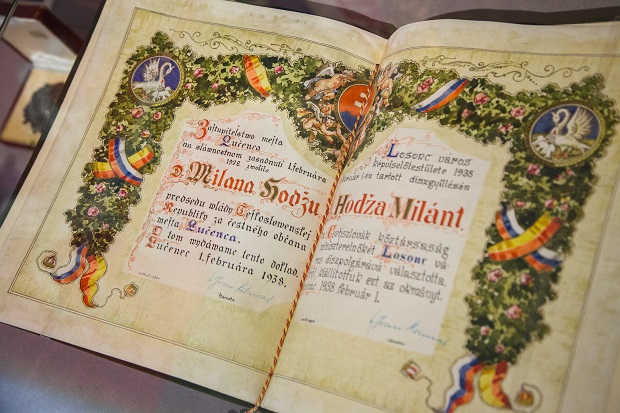 Zastupitelstvo mesta
Lučenca
na slávnostnom zasadnutí 1. februára
1938 zvolilo
Dr Milana Hodžu
predsedu vlády Československej
Republiky za čestného občana
mesta Lučenca.
O tom wydávame tento doklad.
Lučenec 1. februára 1938.
Losonc város
képviselőtestülete 1938
ján tartott díszgyűlésén
Hodža Milánt,
Csehszlovák köztársaság
miniszterelnökét Losonc vá
díszpolgárává választotta.
állítottuk ezt az okmányt.
1938 február 1.